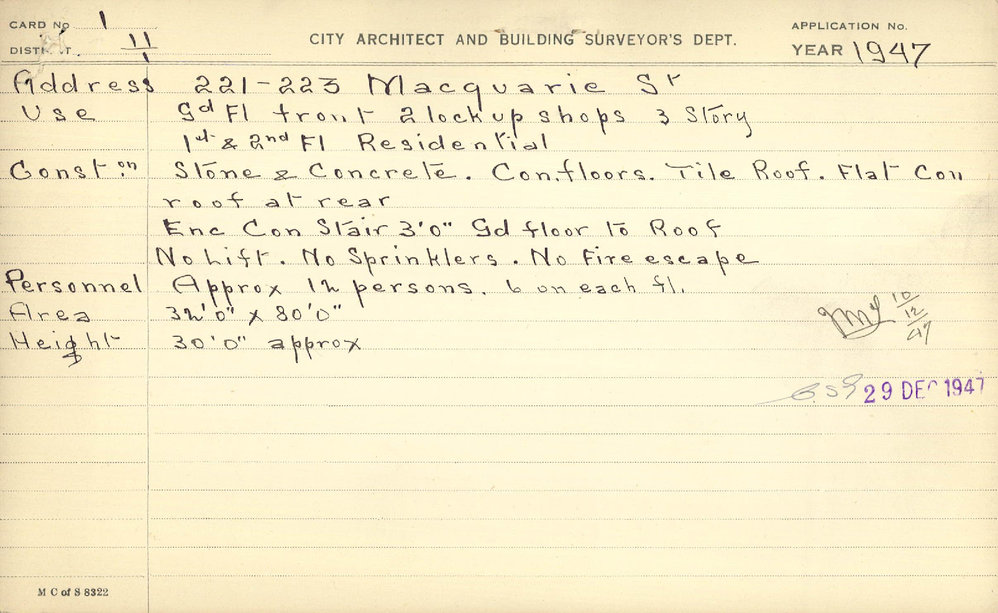 CARD No 1
DISTRICT. 11
CITY ARCHITECT AND BUILDING SURVEYOR'S DEPT.
APPLICATION No.
YEAR 1947
Address 221-223 Macquarie St
Use Gd Fl front 2 lock up shops 3 Story
1st & 2nd Fl Residential
Const on Stone & Concrete. Con. floors. Tile Roof. Flat Con
roof at rear
Enc Con Stair 3'0" Gd floor to Roof
No Lift. No Sprinklers. No Fire escape
Personnel Approx 12 persons. 6 on each fl.
Area 32'0" x 80'0"
Height 30'0" approx
10
12
47
29 DEC 1947
M C of S 8322